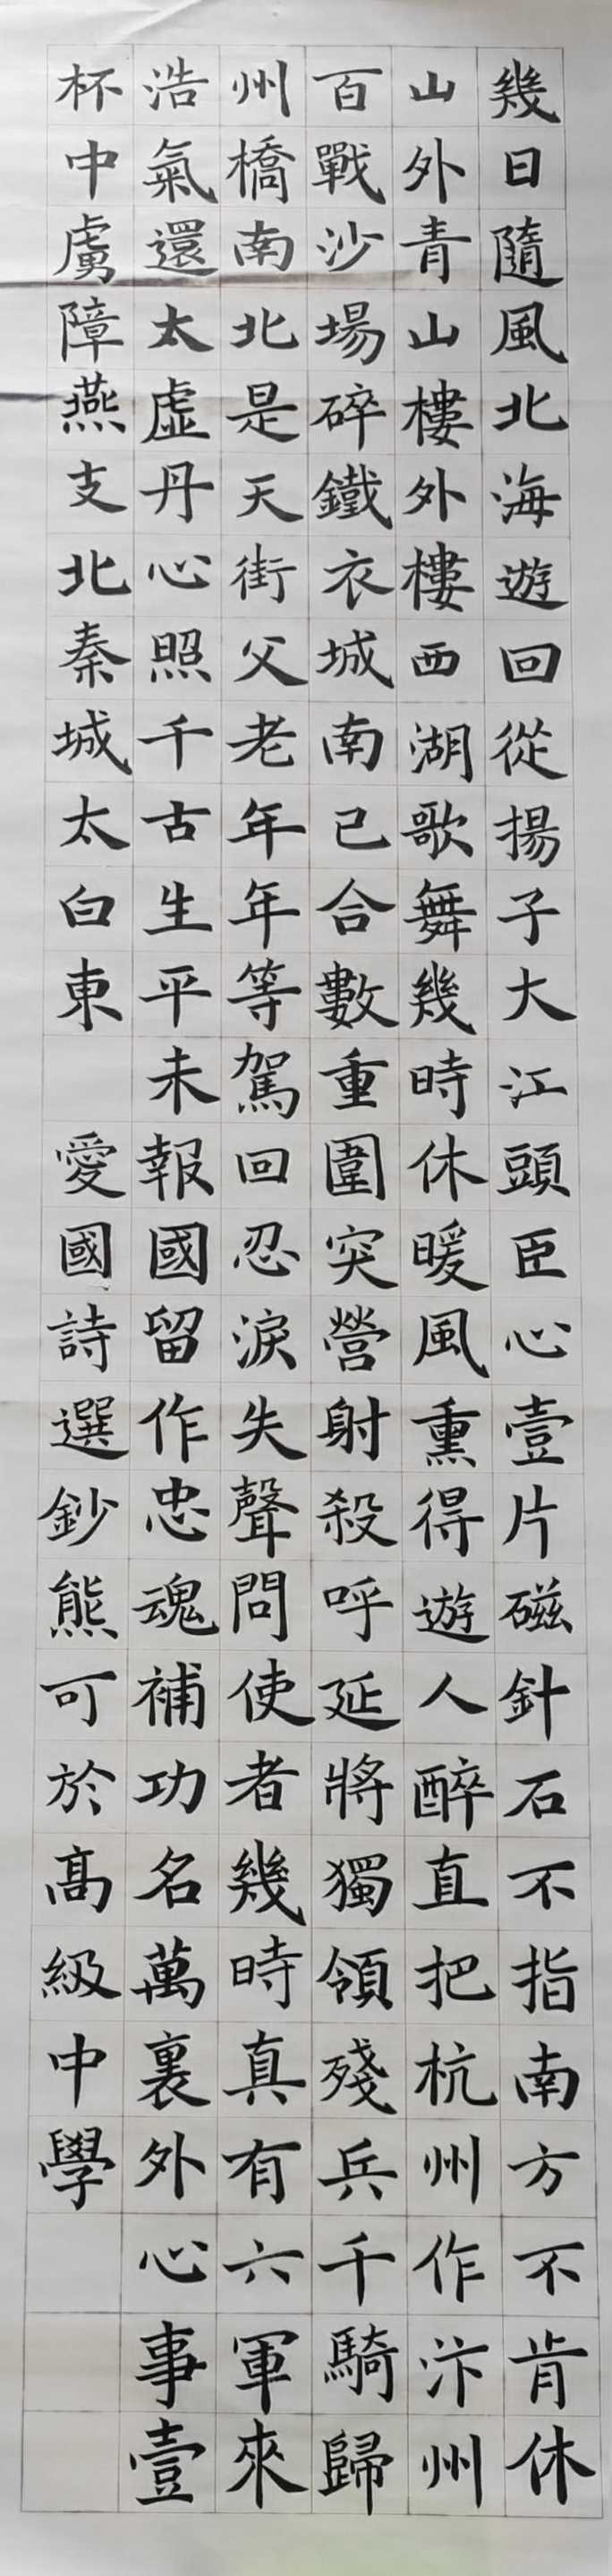 幾日隨風北海遊回從揚子大江頭臣心壹片磁針石不指南方不肯休
山外青山樓外樓西湖歌舞幾時休暖風熏得遊人醉直把杭州作汴州
百戰沙場碎鐵衣城南已合數重圍突營射殺呼延將獨領殘兵千騎歸
州橋南北是天街父老年年等駕回忍淚失聲問使者幾時真有六軍來
浩氣還太虛丹心照千古生平未報國留作忠魂補功名萬裏外心事壹
杯中虜障燕支北秦城太白東 愛國詩選鈔熊可於高級中學